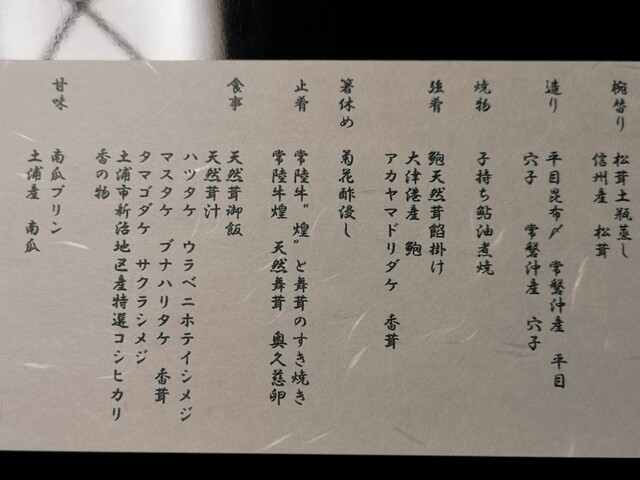 椀替り 松茸土瓶蒸し
信州産 松茸
造り 平目昆布〆 常磐沖産 平目
穴子 常磐沖産 穴子
焼物 子持ち鮎油煮焼
強肴 鮑天然茸餡掛け
大津港産 鮑
アカヤマドリダケ 香茸
箸休め 菊花酢浸し
止肴 常陸牛“煌”と舞茸のすき焼き
常陸牛煌 天然舞茸 奥久慈卵
食事 天然茸御飯
天然茸汁
ハツタケ ウラベニホテイシメジ
マスタケ ブナハリタケ 香茸
タマゴダケ サクラシメジ
土浦市新治地区産特選コシヒカリ
香の物
甘味 南瓜プリン
土浦産 南瓜